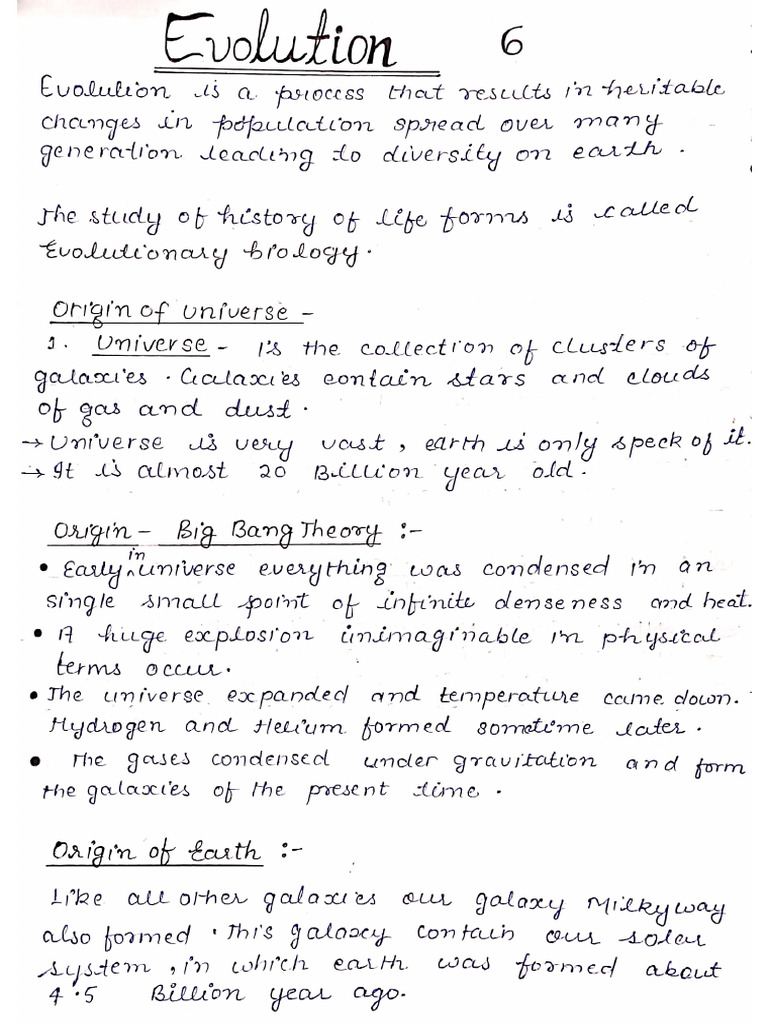 Evolution 6
Evolution is a process that results in heritable
changes in population spread over many
generation leading to diversity on earth.
The study of history of life forms is called
Evolutionary biology.
Origin of universe -
1. Universe - Is the collection of clusters of
galaxies. Galaxies contain stars and clouds
of gas and dust.
→ Universe is very vast, earth is only speck of it.
→ It is almost 20 Billion year old.
Origin - Big Bang Theory :-
• Early in universe everything was condensed in an
single small point of infinite denseness and heat.
• A huge explosion unimaginable in physical
terms occur.
• The universe expanded and temperature came down.
Hydrogen and Helium formed sometime later.
• The gases condensed under gravitation and form
the galaxies of the present time.
Origin of Earth :-
Like all other galaxies our galaxy Milkyway
also formed. This galaxy contain our solar
system, in which earth was formed about
4.5 Billion year ago.